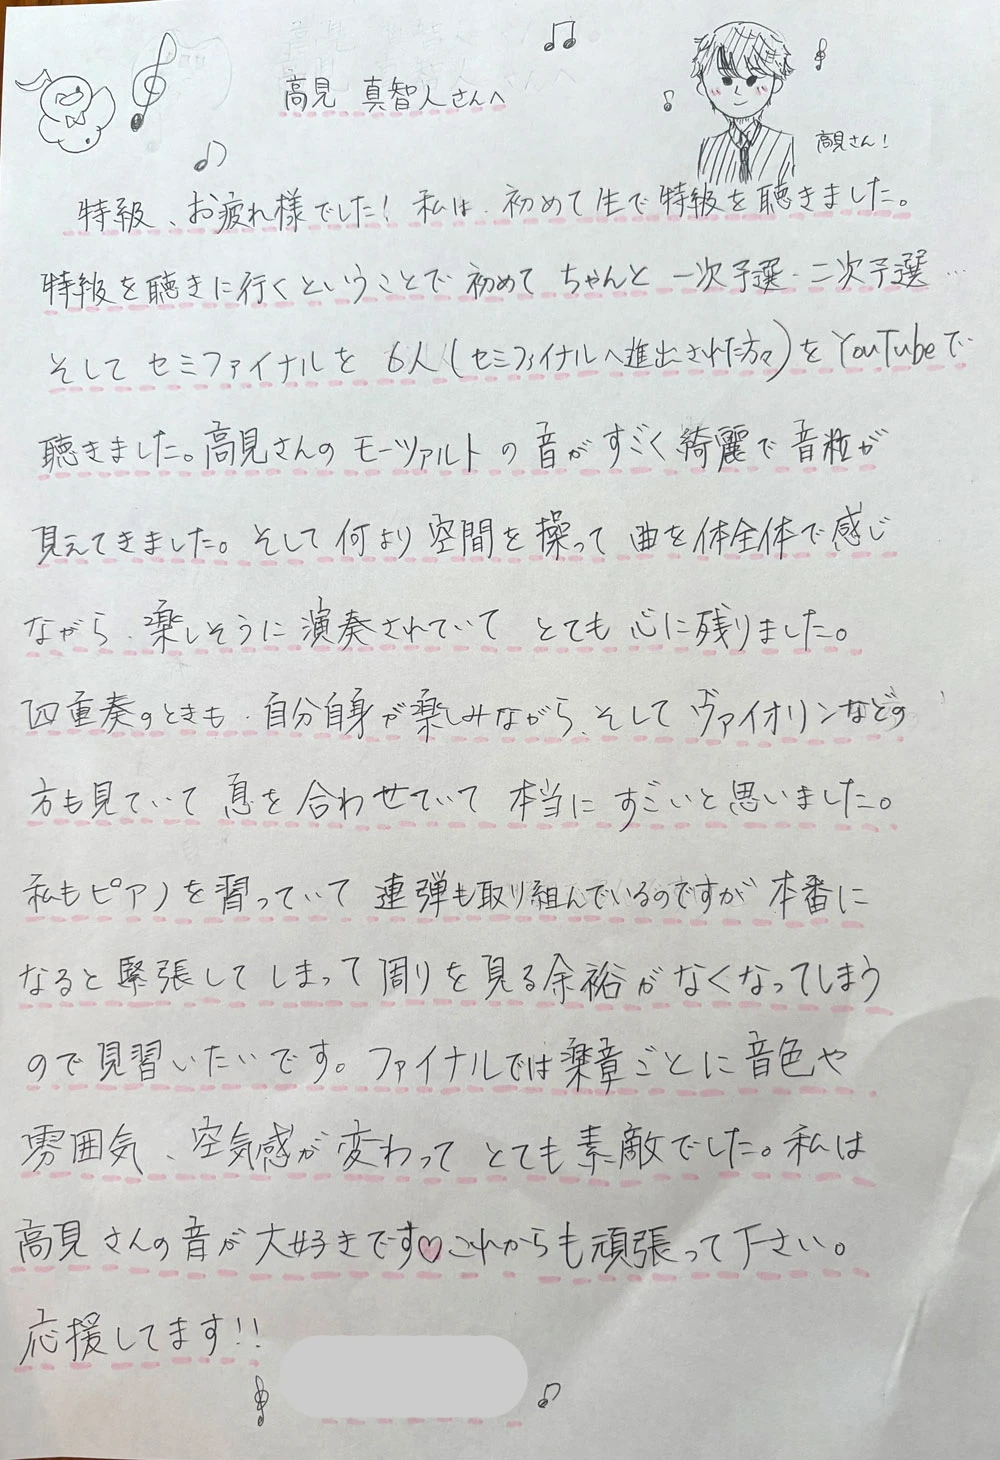 高見 真智人さんへ
高見さん！
特級、お疲れ様でした！私は、初めて生で特級を聴きました。
特級を聴きに行くということで初めてちゃんと一次予選・二次予選…
そしてセミファイナルを6人(セミファイナルへ進出された方々)をYouTubeで
聴きました。高見さんのモーツァルトの音がすごく綺麗で音粒が
見えてきました。そして何より空間を操って曲を体全体で感じ
ながら、楽しそうに演奏されていてとても心に残りました。
四重奏のときも、自分自身が楽しみながら、そしてヴァイオリンなどの
方も見ていて息を合わせていて本当にすごいと思いました。
私もピアノを習っていて連弾も取り組んでいるのですが本番に
なると緊張してしまって周りを見る余裕がなくなってしまう
ので見習いたいです。ファイナルでは楽章ごとに音色や
雰囲気、空気感が変わってとても素敵でした。私は
高見さんの音が大好きです♡これからも頑張って下さい。
応援してます！！